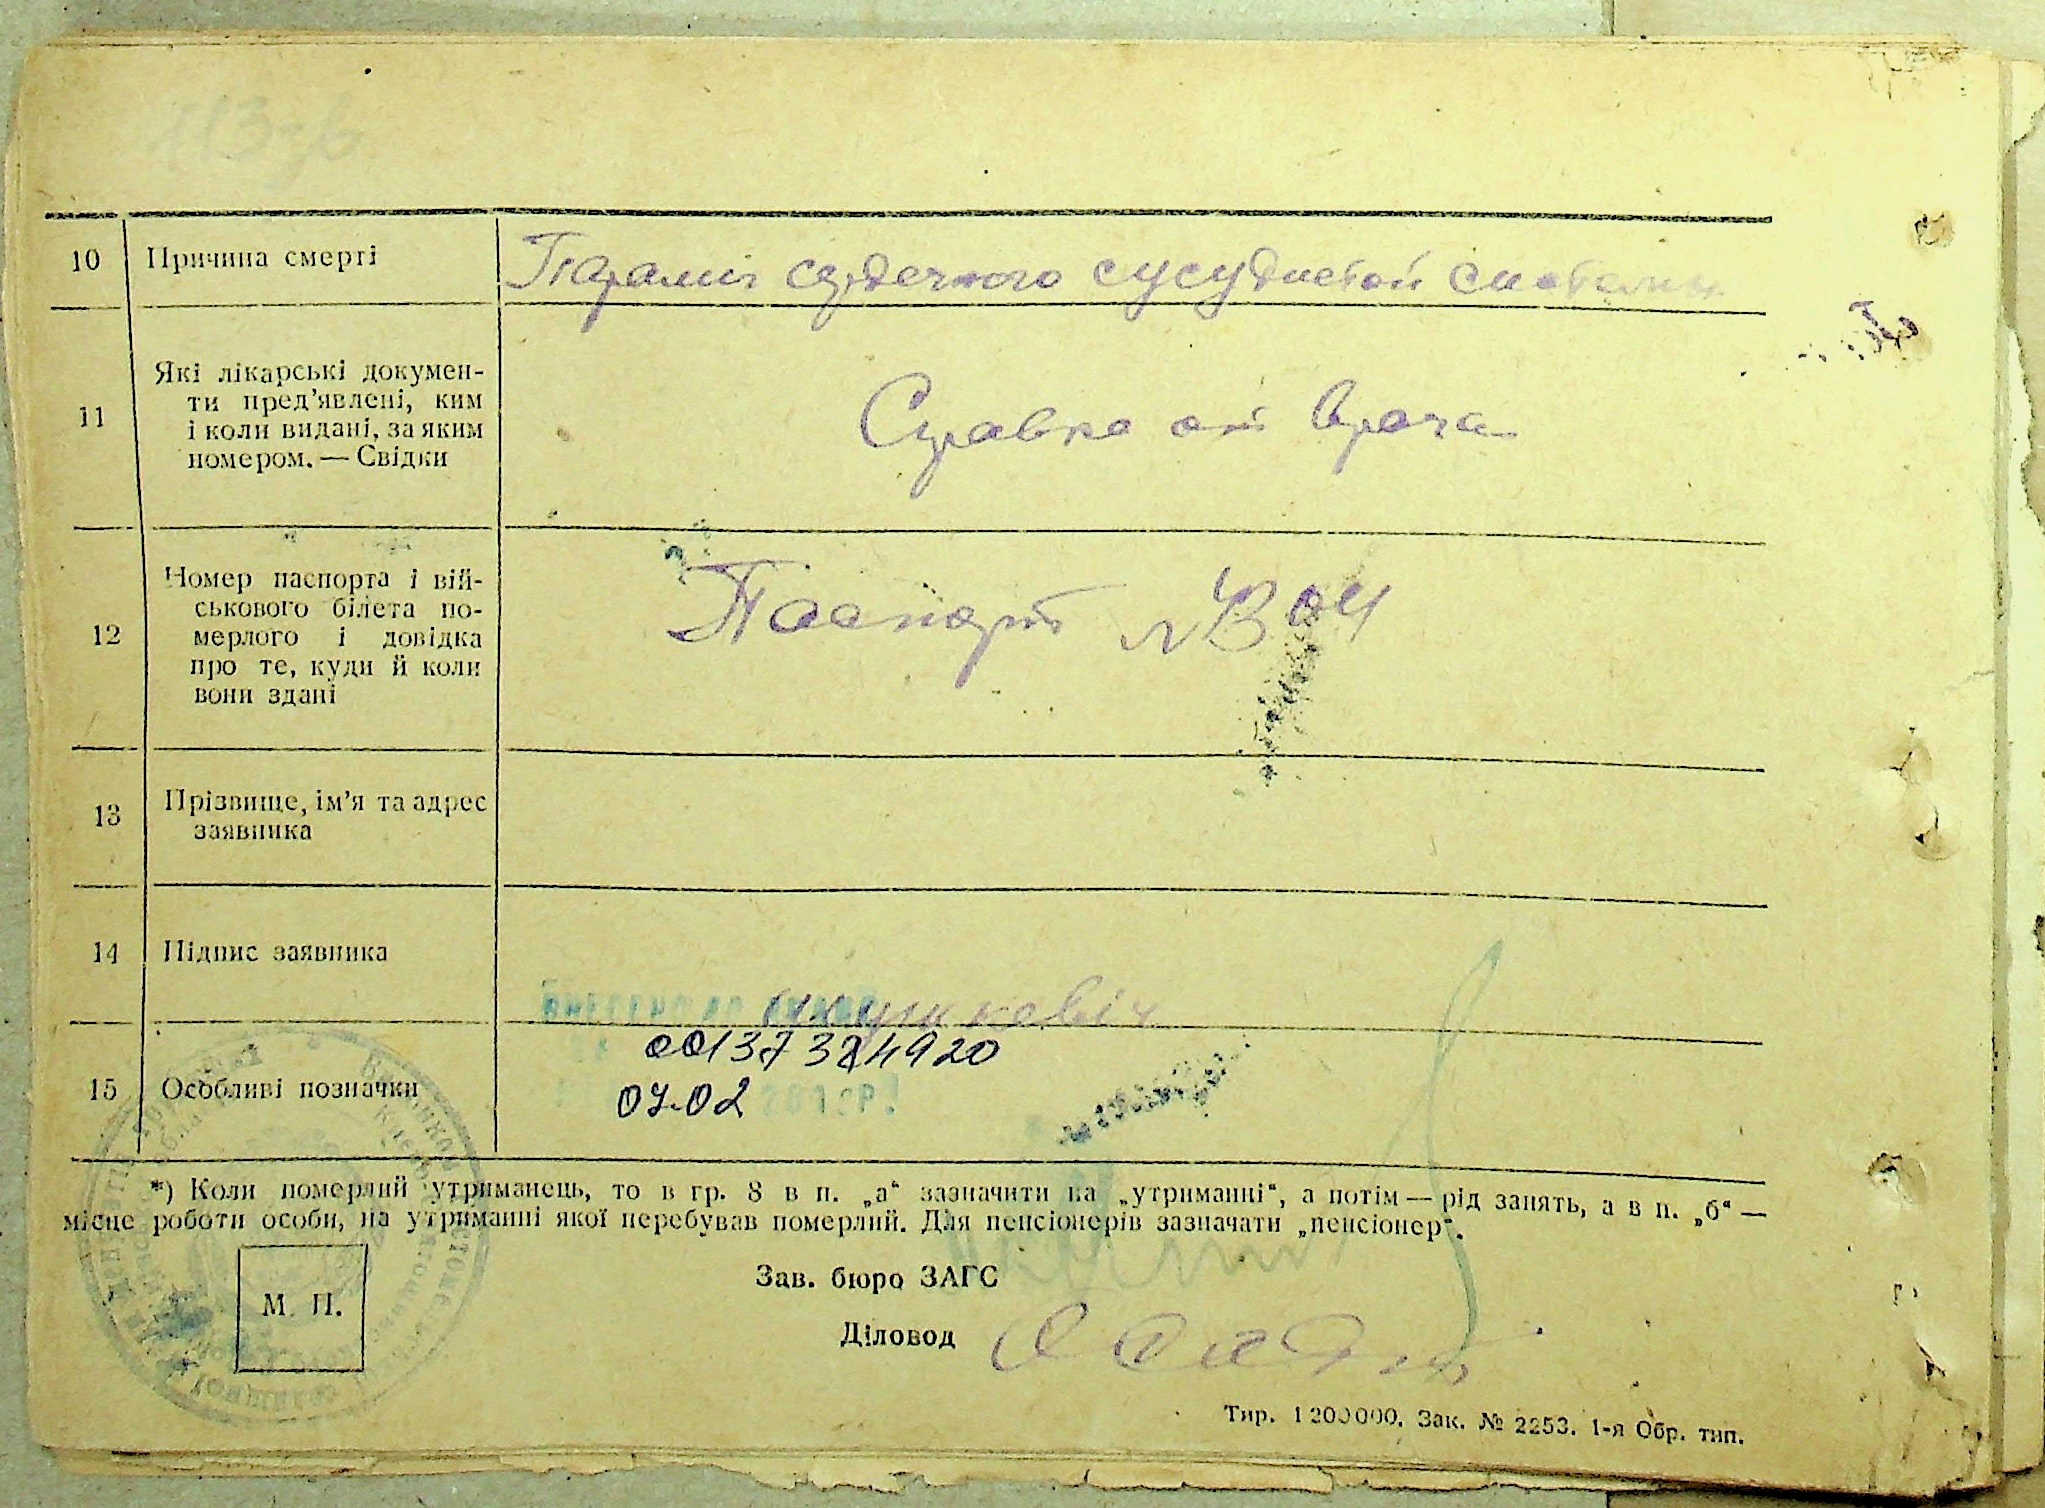 10 Причина смерті
Параліч сердечного сусудистой системы
11 Які лікарські докумен-
ти пред’явлені, ким
і коли видані, за яким
номером. — Свідки
Справка от врача
12 Номер паспорта і вій-
ськового білета по-
мерлого і довідка
про те, куди й коли
вони здані
Паспорт
13 Прізвище, ім’я та адрес
заявника
14 Підпис заявника
15 Особливі позначки
07.02
*) Коли померлий утриманець, то в гр. 8 в п. „а“ зазначити на „утриманні“, а потім — рід занять, а в п. „б“ —
місце роботи особи, на утриманні якої перебував померлий. Для пенсіонерів зазначати „пенсіонер“.
М. П.
Зав. бюро ЗАГС
Діловод
Тир. 1200000. Зак. № 2253. 1-я Обр. тип.